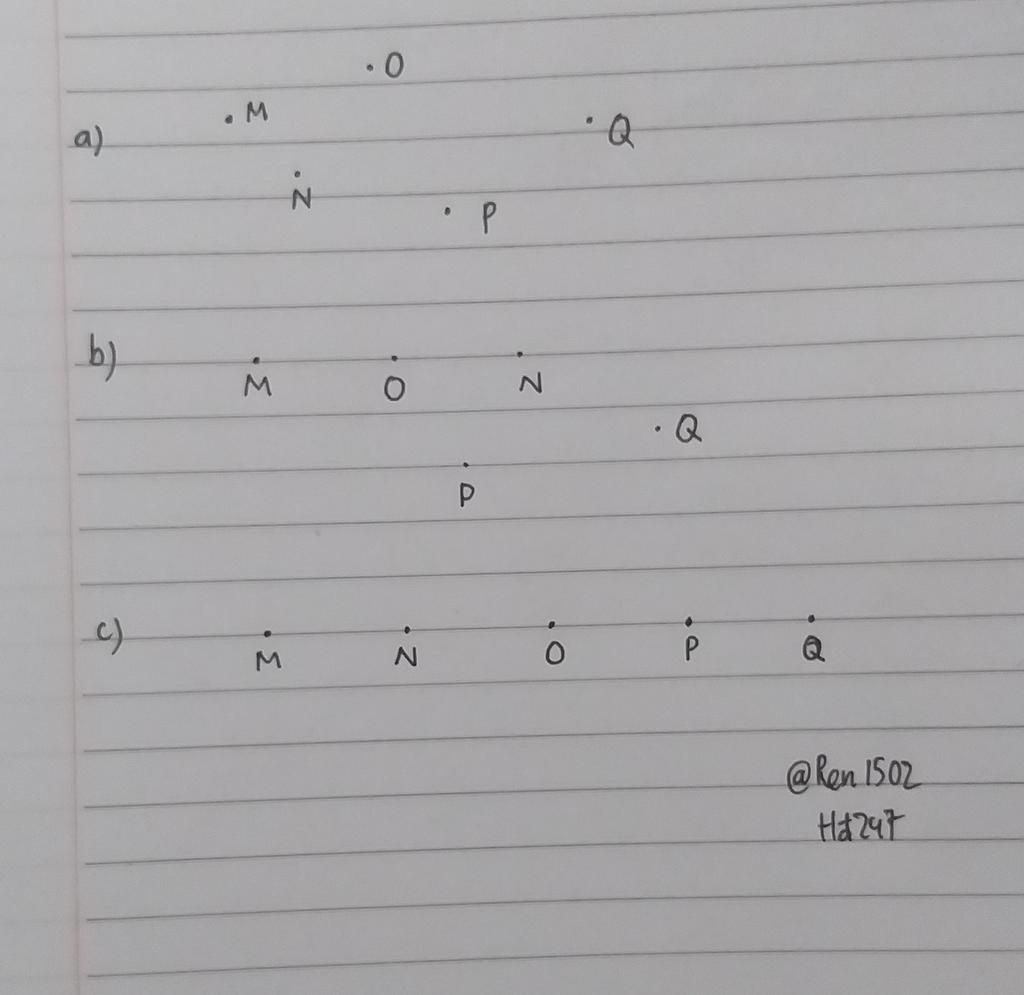 O
M
a)
Q
N
P
b)
M O N
Q
P
c)
M N O P Q
@Ren1502
Hd247